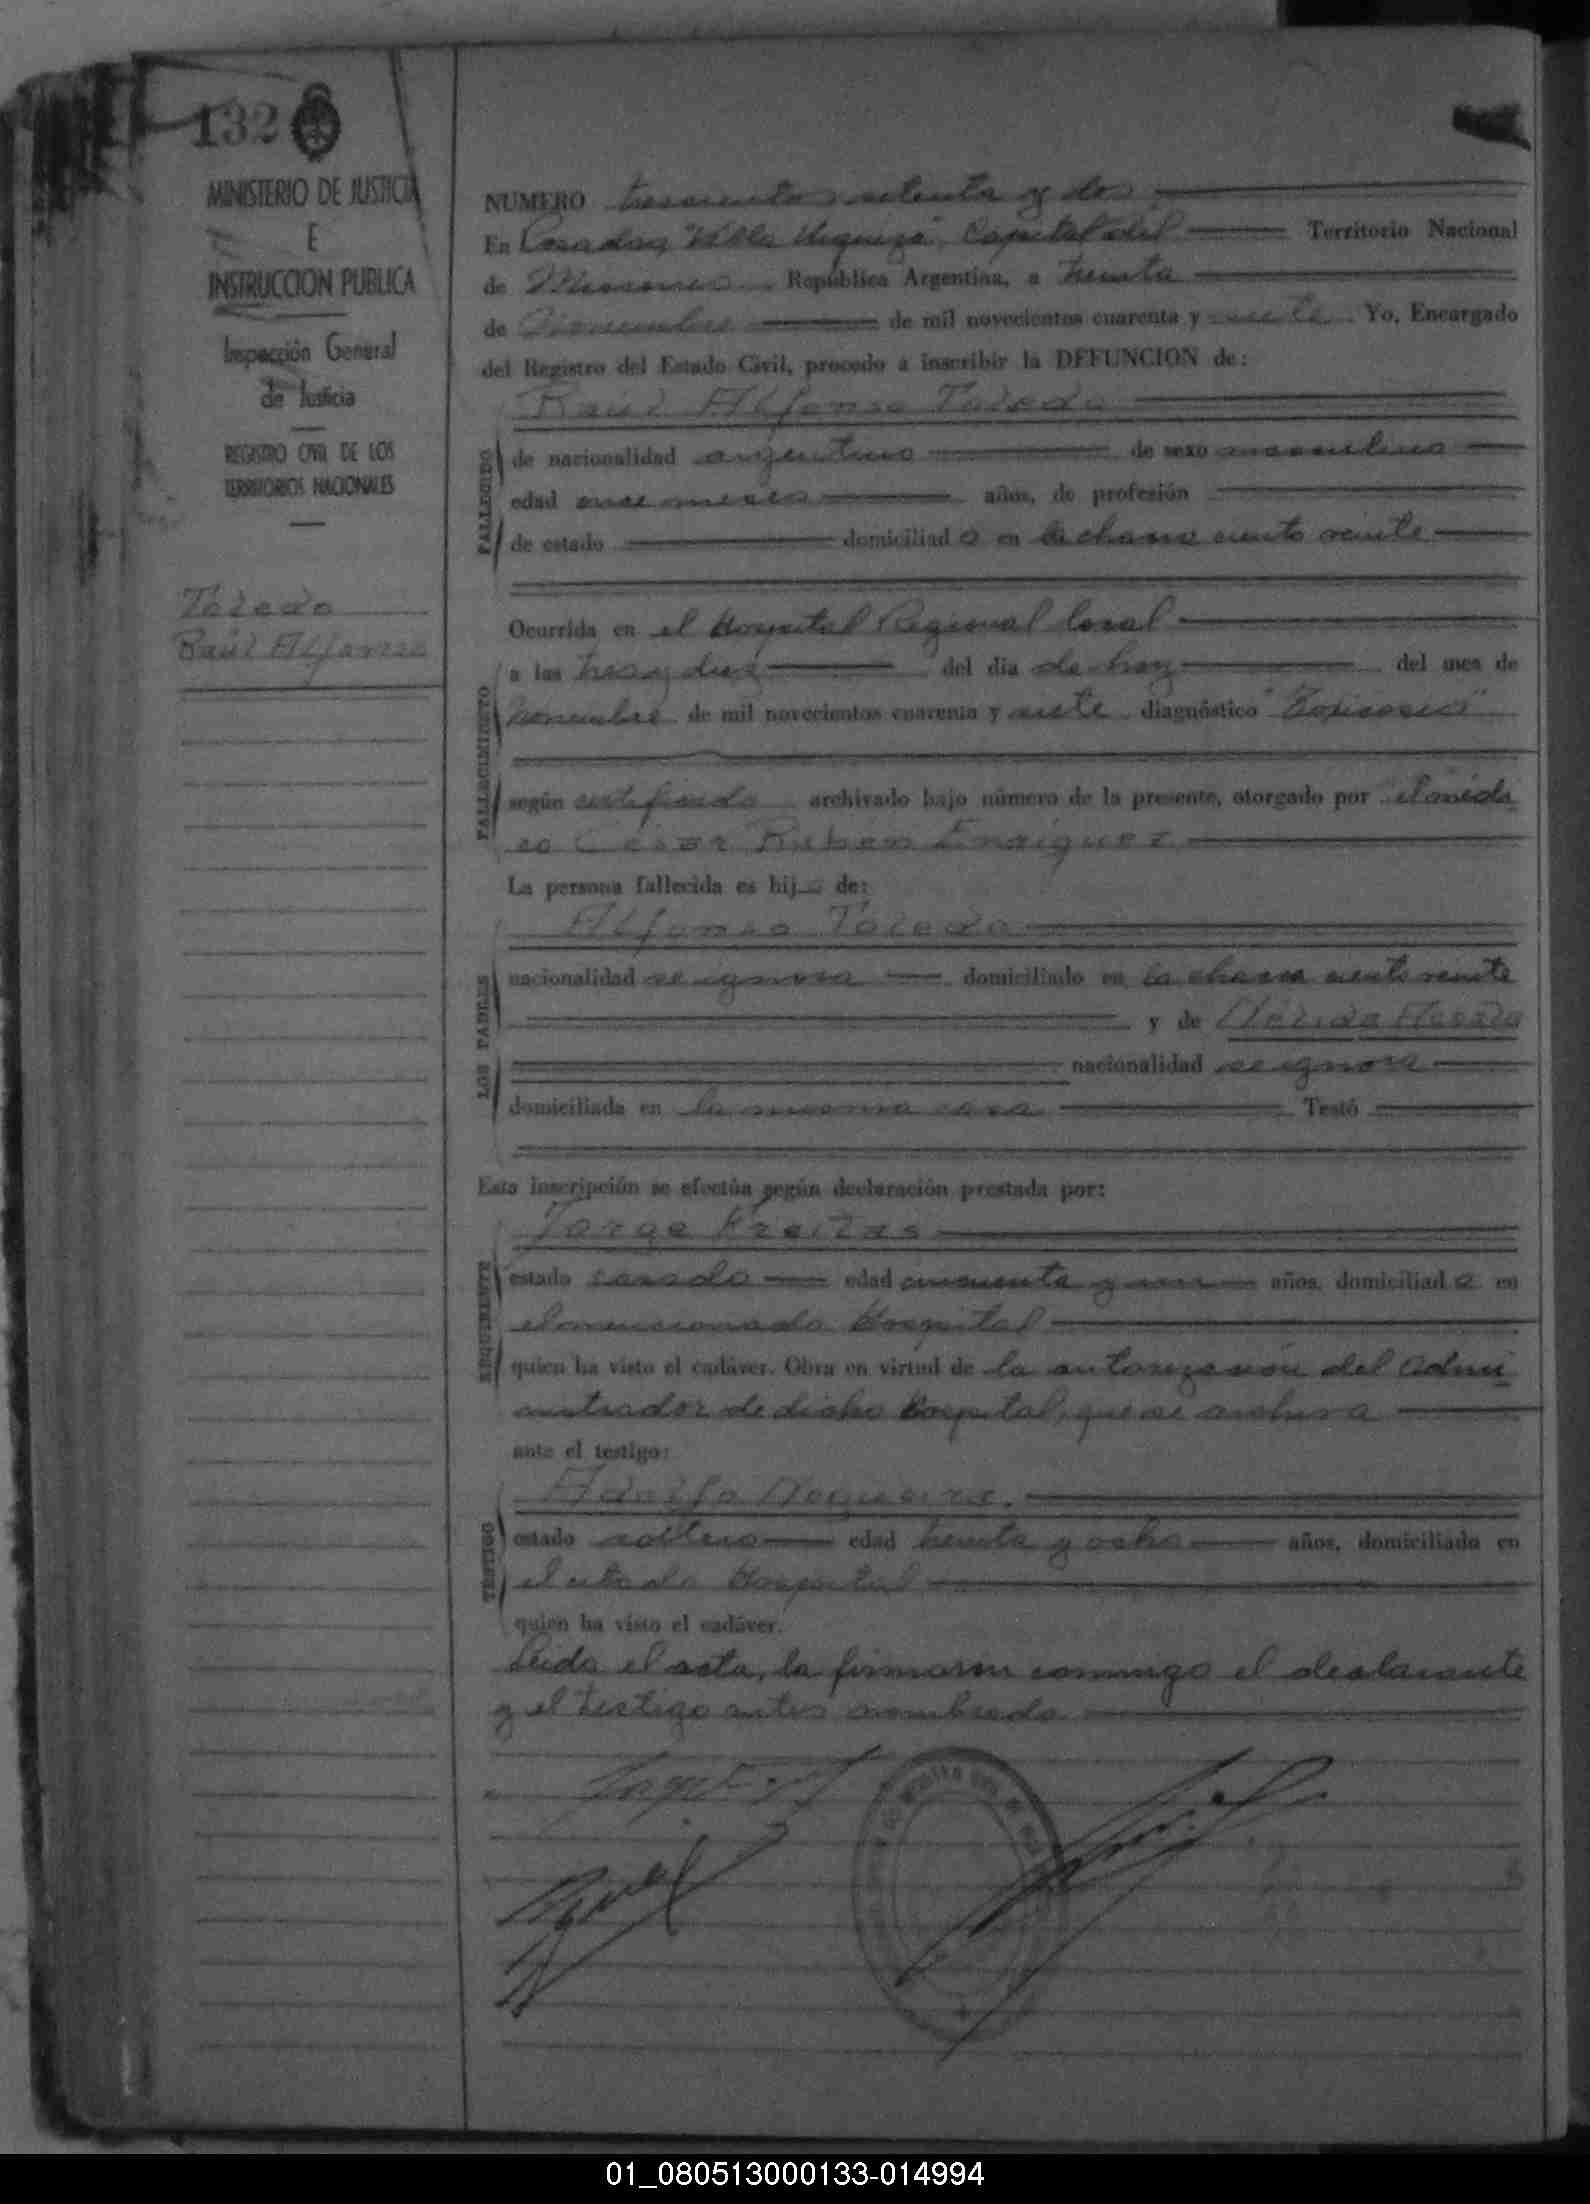 132
MINISTERIO DE JUSTICIA
E
INSTRUCCION PUBLICA
Inspección General
de Justicia
REGISTRO CIVIL DE LOS
TERRITORIOS NACIONALES
Toledo
Raúl Alfonso
NUMERO trescientos setenta y dos
En Posadas, "Villa Urquiza", Capital del Territorio Nacional
de Misiones República Argentina, a treinta
de Noviembre de mil novecientos cuarenta y siete Yo, Encargado
del Registro del Estado Civil, procedo a inscribir la DEFUNCION de:
Raúl Alfonso Toledo
FALLECIDO
de nacionalidad argentino de sexo masculino
edad once meses años, de profesión
de estado domiciliado en la chacra ciento veinte
Ocurrida en el Hospital Regional local
FALLECIMIENTO
a las tres y diez del día de hoy del mes de
Noviembre de mil novecientos cuarenta y siete diagnóstico "Toxicosis"
según certificado archivado bajo número de la presente, otorgado por el médi
co César Rubén Enríquez
La persona fallecida es hijo de:
Alfonso Toledo
LOS PADRES
nacionalidad se ignora domiciliado en la chacra ciento veinte
y de Nélida
nacionalidad se ignora
domiciliada en la misma casa Testó
Esta inscripción se efectúa según declaración prestada por:
Jorge Freitas
REQUIRENTE
estado casado edad cincuenta y un años, domiciliado en
el mencionado Hospital
quien ha visto el cadáver. Obra en virtud de la autorización del Admi
nistrador de dicho Hospital, que se archiva
ante el testigo:
Adolfo Nogueira.
TESTIGO
estado soltero edad treinta y ocho años, domiciliado en
el citado Hospital
quien ha visto el cadáver.
Leída el acta, la firmaron conmigo el declarante
y el testigo antes nombrado
01_080513000133-014994